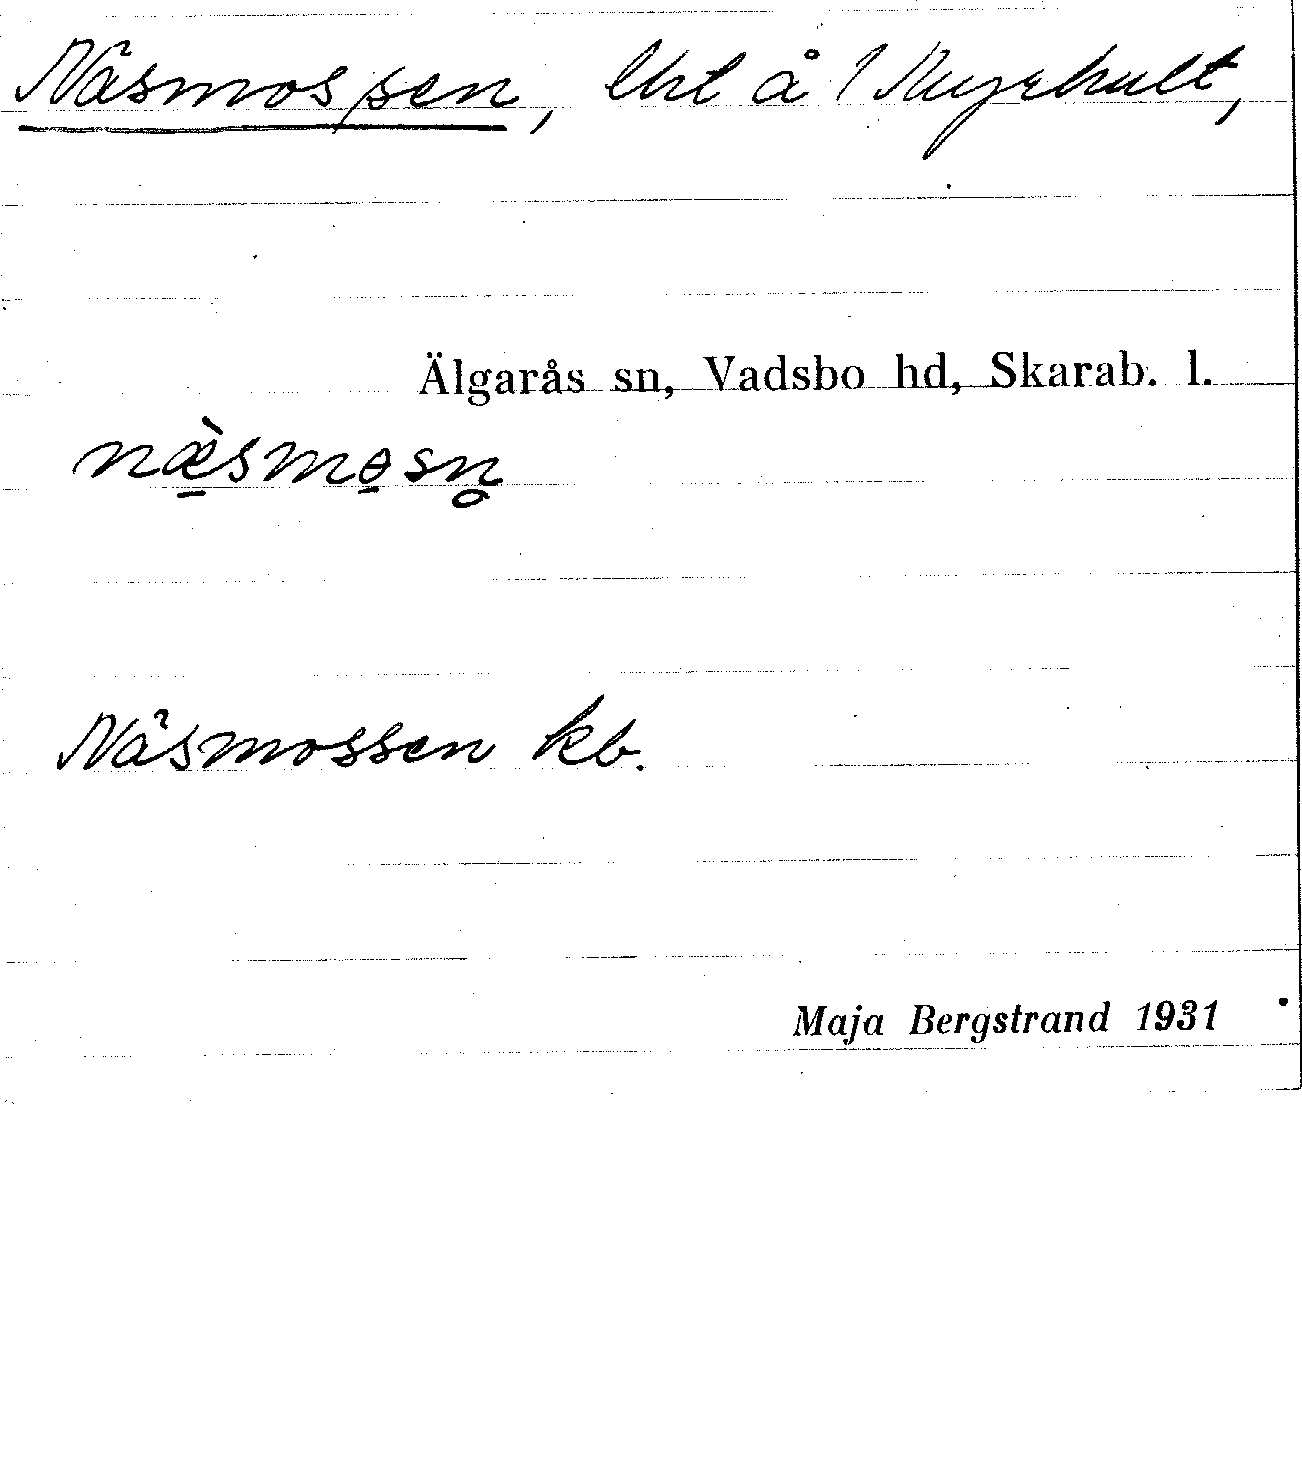 Näsmossen, lht å 1 Myrhult,
Älgarås sn, Vadsbo hd, Skarab. l.
næ̠̀smɵ̠sn̥
Näsmossen kb.
Maja Bergstrand 1931